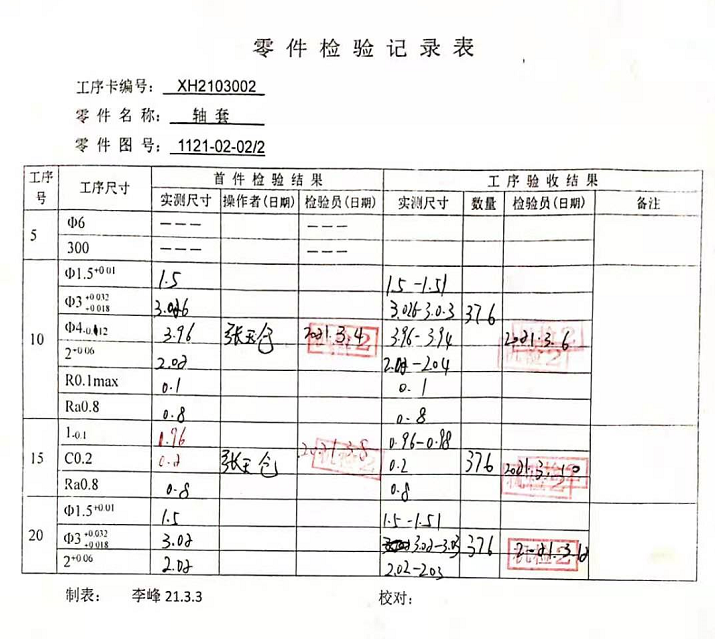 零件检验记录表
工序卡编号： XH2103002
零件名称： 轴套
零件图号： 1121-02-02/2
工序号 工序尺寸 首件检验结果 工序验收结果
实测尺寸 操作者(日期) 检验员(日期) 实测尺寸 数量 检验员(日期) 备注
5 Φ6 --- ---
300 --- ---
10 Φ1.5+0.01 1.5 1.5-1.51
Φ3 +0.032 +0.018 3.026 3.026-3.03 376
Φ4 3.96 2021.3.4 3.96-3.94 2021.3.6
2+0.06 2.02 2.02-2.04
R0.1max 0.1 0.1
Ra0.8 0.8 0.8
15 1-0.1 0.96 0.96-0.98
C0.2 0.2 2021.3.8 0.2 376 2021.3.10
Ra0.8 0.8 0.8
20 Φ1.5+0.01 1.5 1.5-1.51
Φ3 +0.032 +0.018 3.02 3.02-3.03 376 2021.3.12
2+0.06 2.02 2.02-2.03
制表： 李峰 21.3.3 校对：